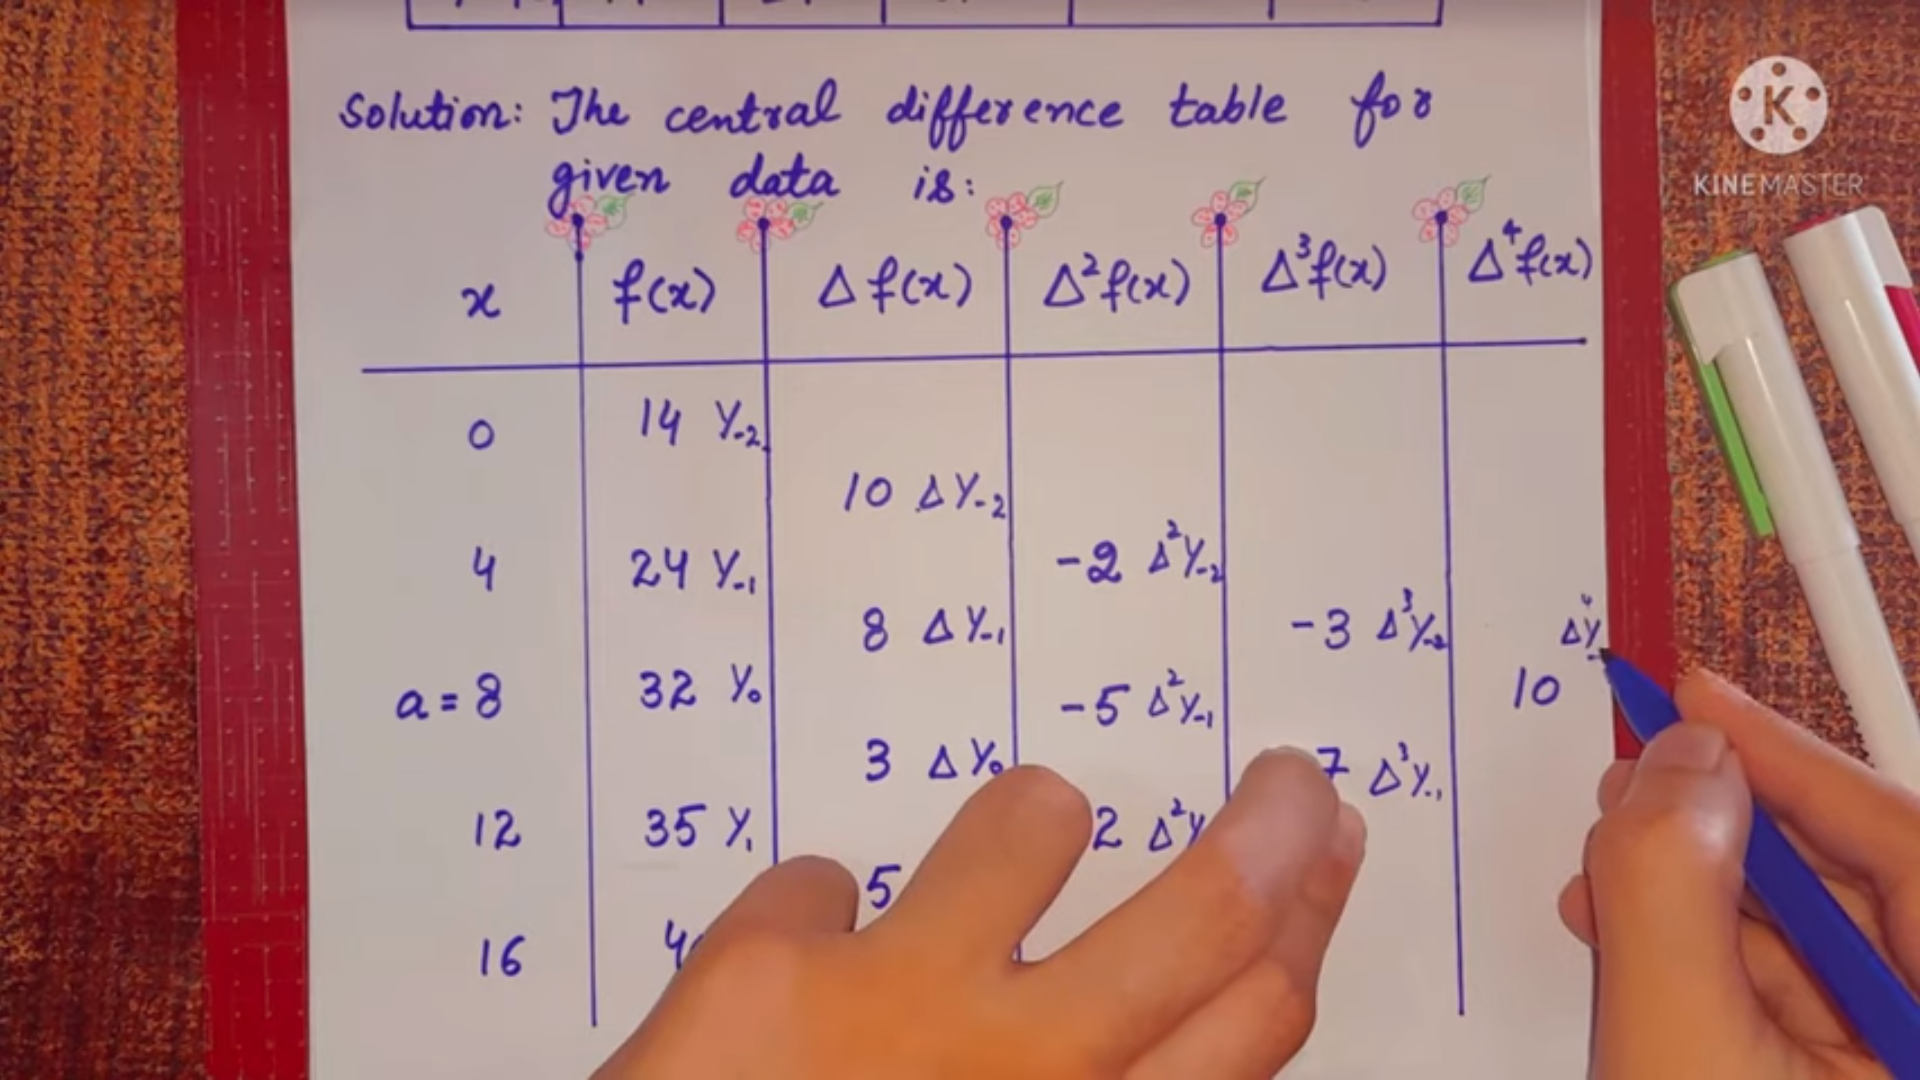 Solution: The central difference table for
given data is:
x f(x) Δf(x) Δ²f(x) Δ³f(x) Δ⁴f(x)
0 14 Y₋₂
10 ΔY₋₂
4 24 Y₋₁ -2 Δ²Y₋₂
8 ΔY₋₁ -3 Δ³Y₋₂ Δ⁴Y
a = 8 32 Y₀ -5 Δ²Y₋₁ 10
3 ΔY₀ 7 Δ³Y₋₁
12 35 Y₁ 2 Δ²Y
5
16 4
K
KINEMASTER